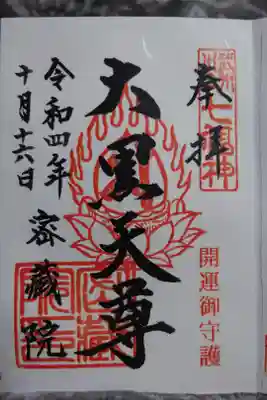 奉拝
七福神
開運御守護
大黒天尊
令和四年
十月十六日
密蔵院